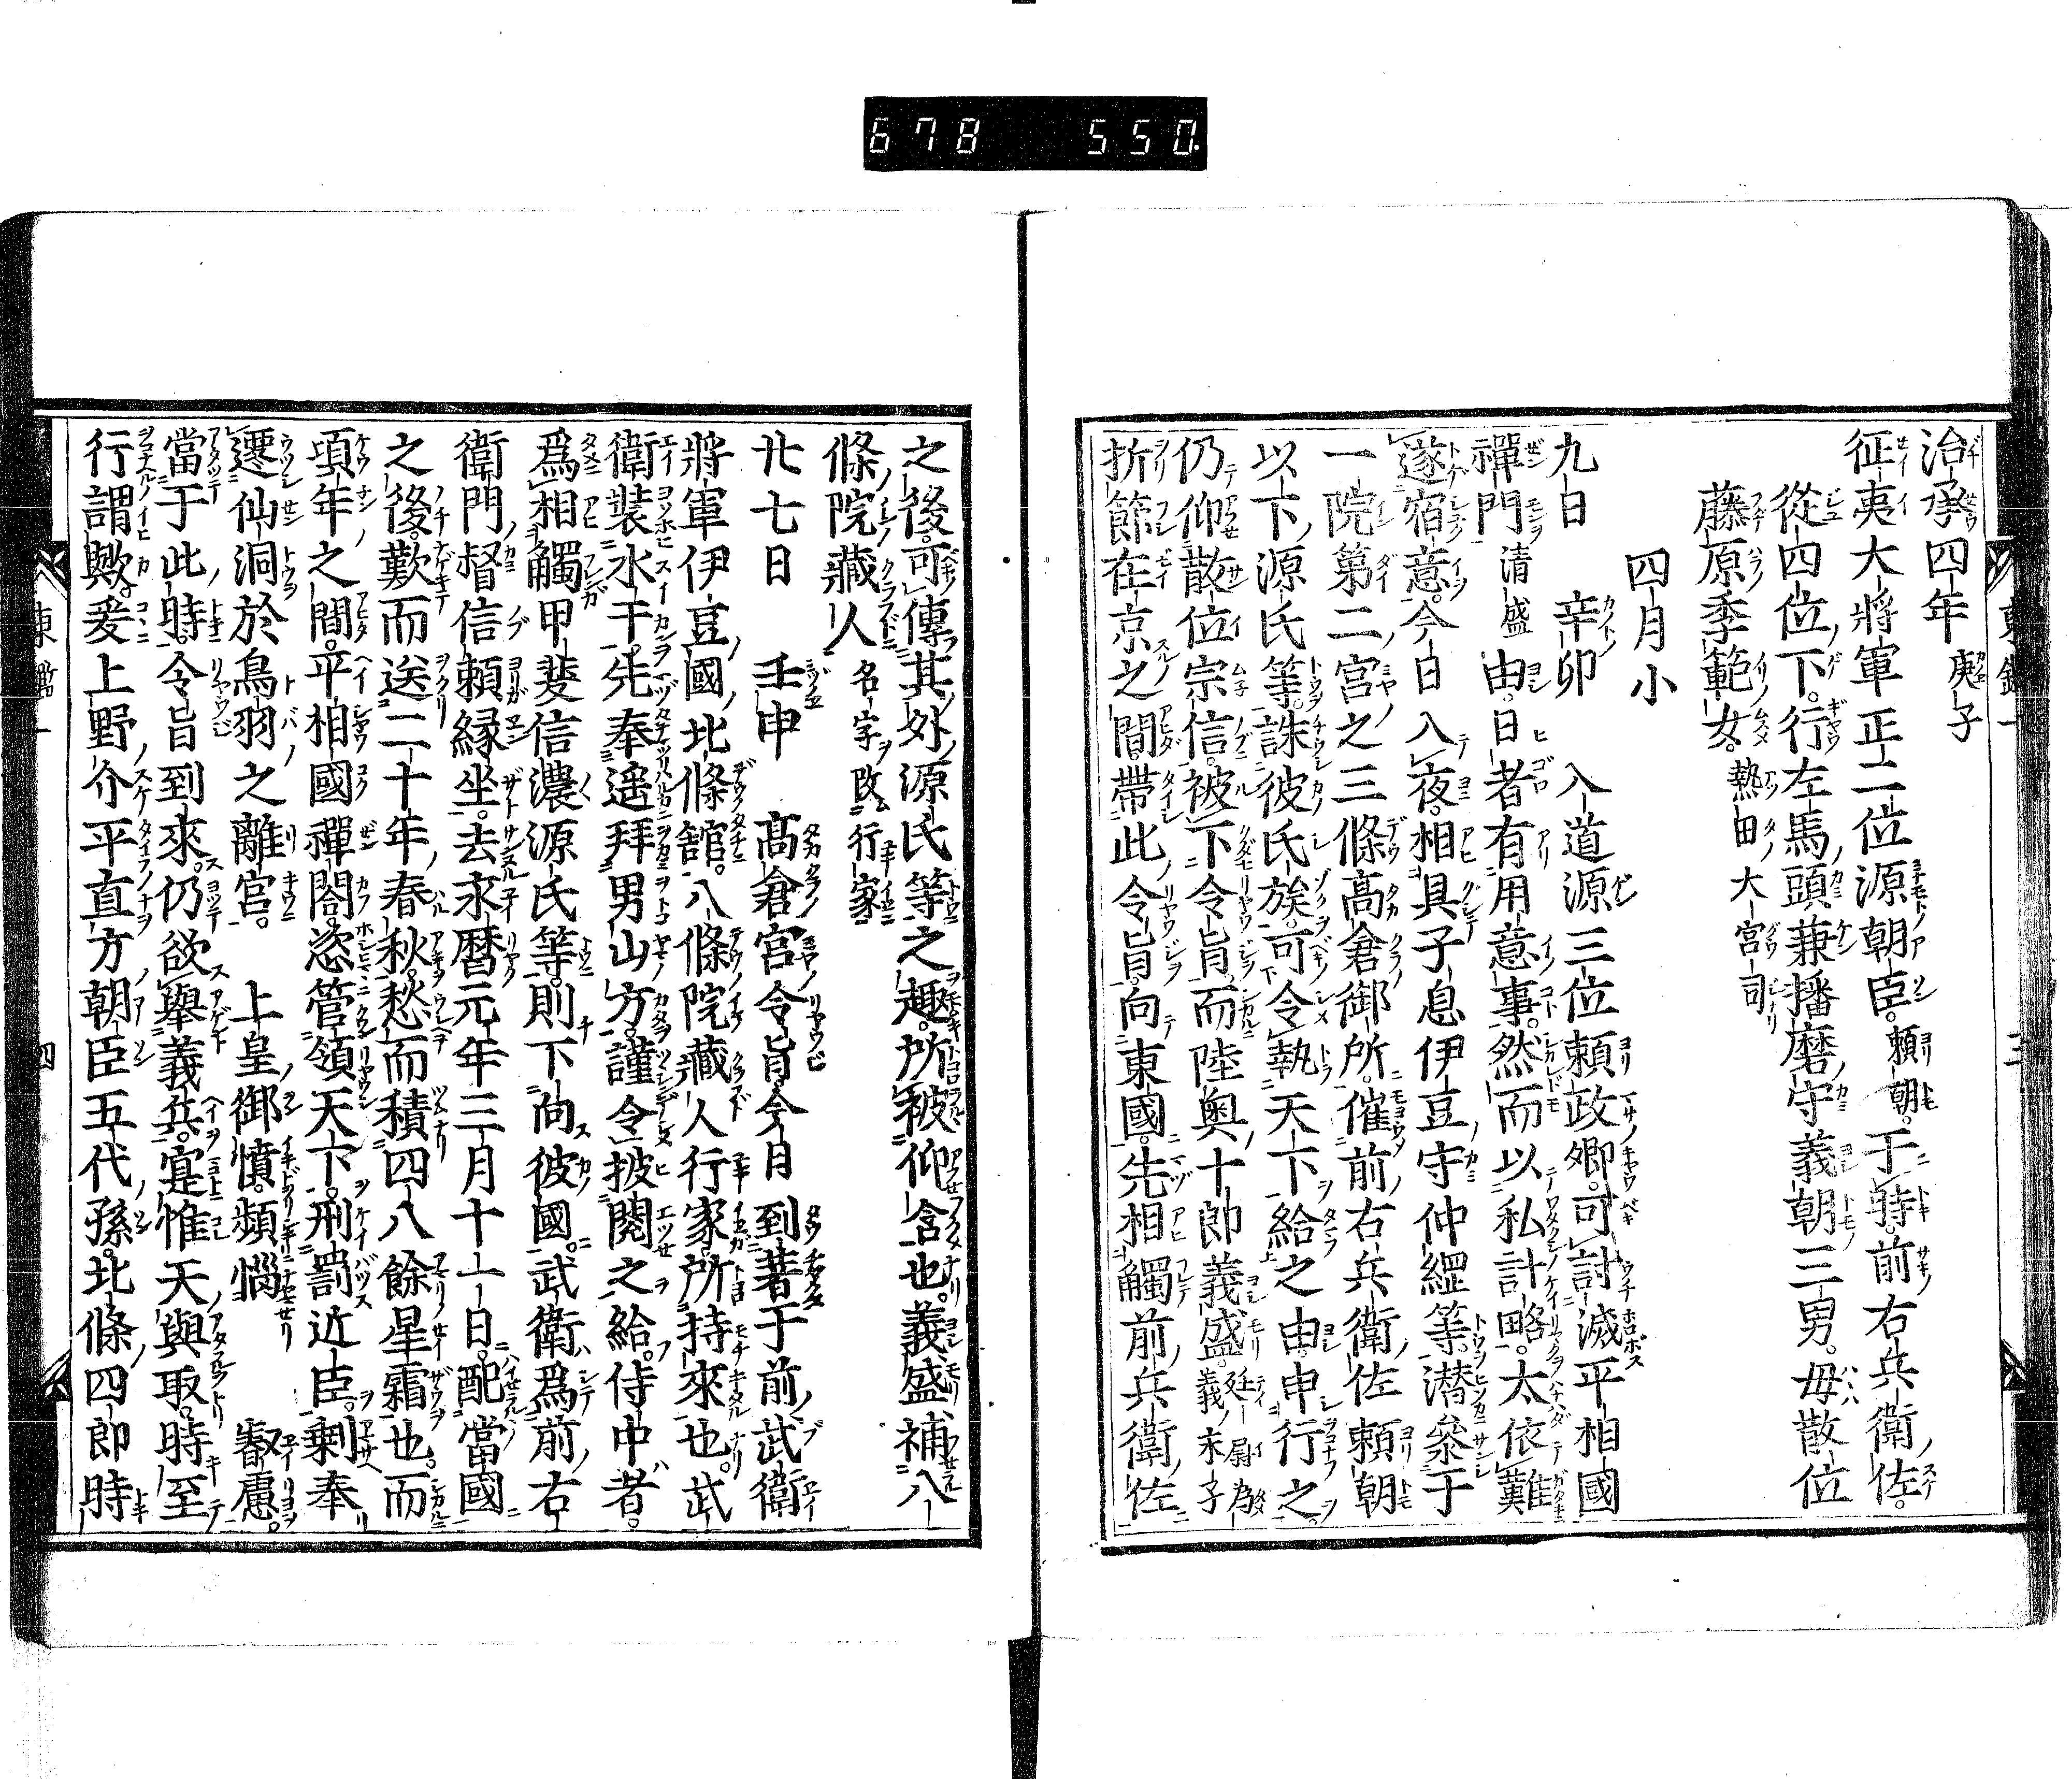 678 550
治承四年庚子
征夷大將軍正二位源朝臣。頼朝。于時。前右兵衛佐。
從四位下。行左馬頭兼播磨守義朝三男。母散位
藤原季範女。熱田大宮司
四月小
九日 辛卯 入道源三位頼政卿。可討滅平相國
禪門清盛由。日者有用意事。然而以私計略。太依難
遂宿意。今日入夜。相具子息伊豆守仲綱等。潜参于
一院第二宮之三條髙倉御所。催前右兵衛佐頼朝
以下源氏等。誅彼氏族。可令執天下給之由。申行之。
仍仰散位宗信。被下令旨。而陸奥十郎義盛。廷尉為義末子
折節在京之間。帶此令旨。向東國。先相觸前兵衛佐
之後。可傳其外源氏等之趣。所被仰含也。義盛補八
條院藏人名字改行家
廿七日 壬申 髙倉宮令旨。今日到著于前武衛
將軍伊豆國北條舘。八條院藏人行家。所持來也。武
衛裝水干。先奉遙拜男山方。謹令披閱之給。侍中者。
爲相觸甲斐信濃源氏等。則下向彼國。武衛爲前右
衛門督信頼縁坐。去永曆元年三月十一日。配當國
之後。歎而送二十年春秋。愁而積四八餘星霜也。而
項年之間。平相國禪閤。恣管領天下。刑罰近臣。剩奉
遷仙洞於鳥羽之離宮。 上皇御憤。頻惱 叡慮。
當于此時。令旨到來。仍欲擧義兵。寔惟天與取。時至
行謂歟。爰上野介平直方朝臣五代孫。北條四郎時
東鑑一 三
東鑑一 四